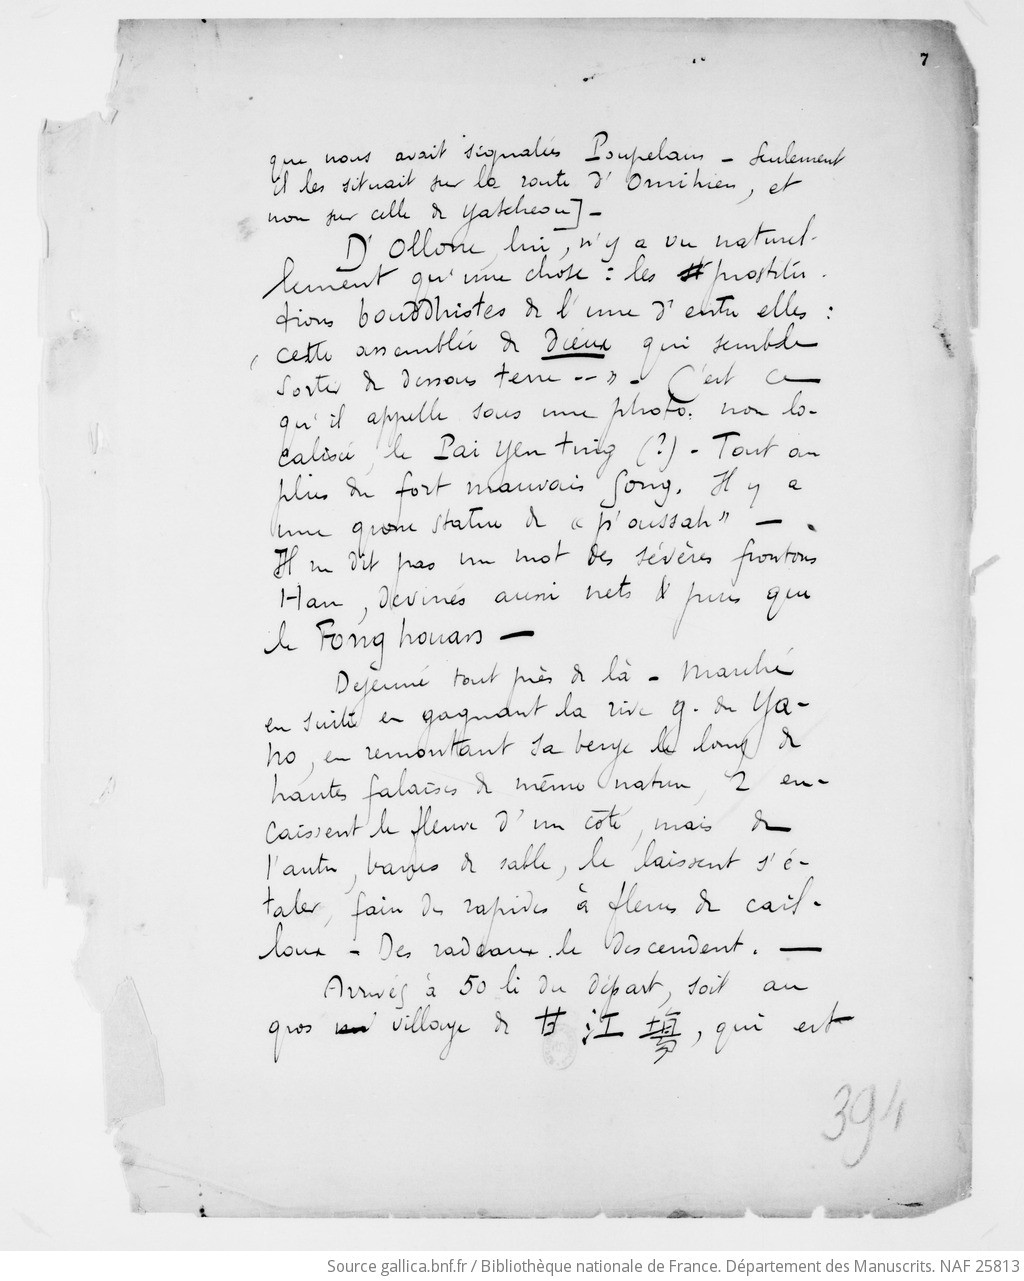 7
que nous avait signalées Poupelain – Seulement
il les situait sur la route d'Omihien, et
non sur celle de Yatcheou] –
D'Ollone, lui, n'y a vu naturel-
lement qu'une chose : les prostitu-
tions bouddhistes de l'une d'entre elles :
cette assemblée de Dieux qui semble
sortir de dessous terre --» – C'est ce
qu'il appelle sous une photo. non lo-
calisée, le Pai yen tsing (?) – Tout au
plus du fort mauvais Song. Il y a
une grosse statue de « p'oussah » –
Il ne dit pas un mot des sévères frontons
Han, devinés aussi nets & purs que
le Fong houans –
Déjeuné tout près de là – Marché
ensuite en gagnant la rive g. du Ya-
ho, en remontant sa berge le long de
hautes falaises de même nature, 2 en-
caissent le fleuve d'un côté, mais de
l'autre, bancs de sable, le laissent s'é-
taler, faire des rapides à fleurs de cail-
loux – Des radeaux le descendent. –
Arrivés à 50 li du départ, soit au
gros village de 甘江塲, qui est
394
Source gallica.bnf.fr / Bibliothèque nationale de France. Département des Manuscrits. NAF 25813